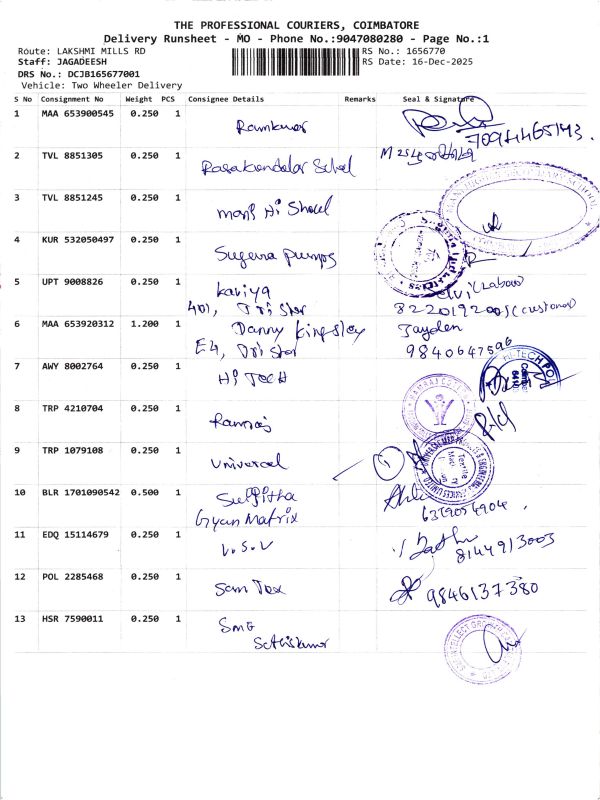 THE PROFESSIONAL COURIERS, COIMBATORE
Delivery Runsheet - MO - Phone No.:9047080280 - Page No.:1
Route: LAKSHMI MILLS RD
Staff: JAGADEESH
DRS No.: DCJB165677001
Vehicle: Two Wheeler Delivery
RS No.: 1656770
RS Date: 16-Dec-2025
S No Consignment No Weight PCS Consignee Details Remarks Seal & Signature
1 MAA 653900545 0.250 1 Ramkumar
2 TVL 8851305 0.250 1
3 TVL 8851245 0.250 1
4 KUR 532050497 0.250 1 Suguna Pumps
5 UPT 9008826 0.250 1 Kaviya
401, Tri Star 8220192005 (customer)
6 MAA 653920312 1.200 1 Danny Kingsley Jayden
E4, Tri Star 9840647596
7 AWY 8002764 0.250 1 Hi Tech
8 TRP 4210704 0.250 1 Ramraj
9 TRP 1079108 0.250 1 Universal
10 BLR 1701090542 0.500 1
Gyan Matrix 6369054904
11 EDQ 15114679 0.250 1 V.S.V 8144913003
12 POL 2285468 0.250 1 Sam Tex 9846137380
13 HSR 7590011 0.250 1 SMG
Sathiskumar